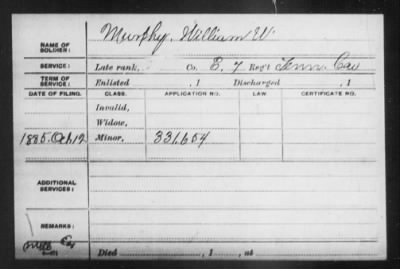 NAME OF SOLDIER: Murphy, William W.
SERVICE: Late rank, Co. E, 7 Reg't Tenn. Cav
TERM OF SERVICE: Enlisted , 1 Discharged , 1
DATE OF FILING. CLASS. APPLICATION NO. LAW. CERTIFICATE NO.
Invalid,
Widow,
1885. Oct 12 Minor, 331.654
ADDITIONAL SERVICES:
REMARKS:
Died , 1 , at